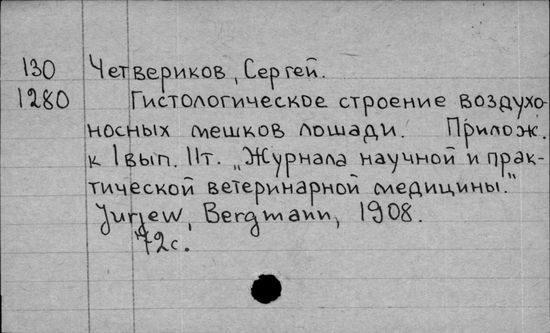 130 Четвериков, Сергей.
1280 Гистологическое строение воздухо-
носных мешков лошади. Прилож.
к 1 вып. IIт. „Журнала научной и прак-
тической ветеринарной медицины."
Jurjew, Bergmann, 1908.
72с.